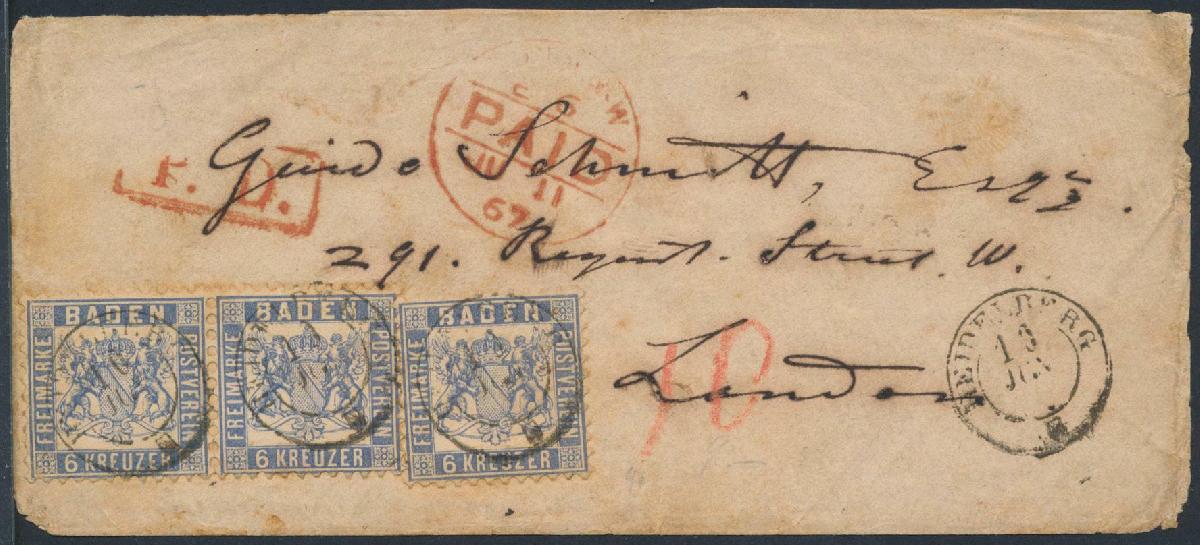 PAID
11
67
P. D.
Guido Schmitt, Esqre.
291. Regent. Street. W.
London
10
HEIDELBERG
JUN
BADEN
FREIMARKE
POSTVEREIN
6 KREUZER
BADEN
FREIMARKE
POSTVEREIN
6 KREUZER
BADEN
FREIMARKE
POSTVEREIN
6 KREUZER